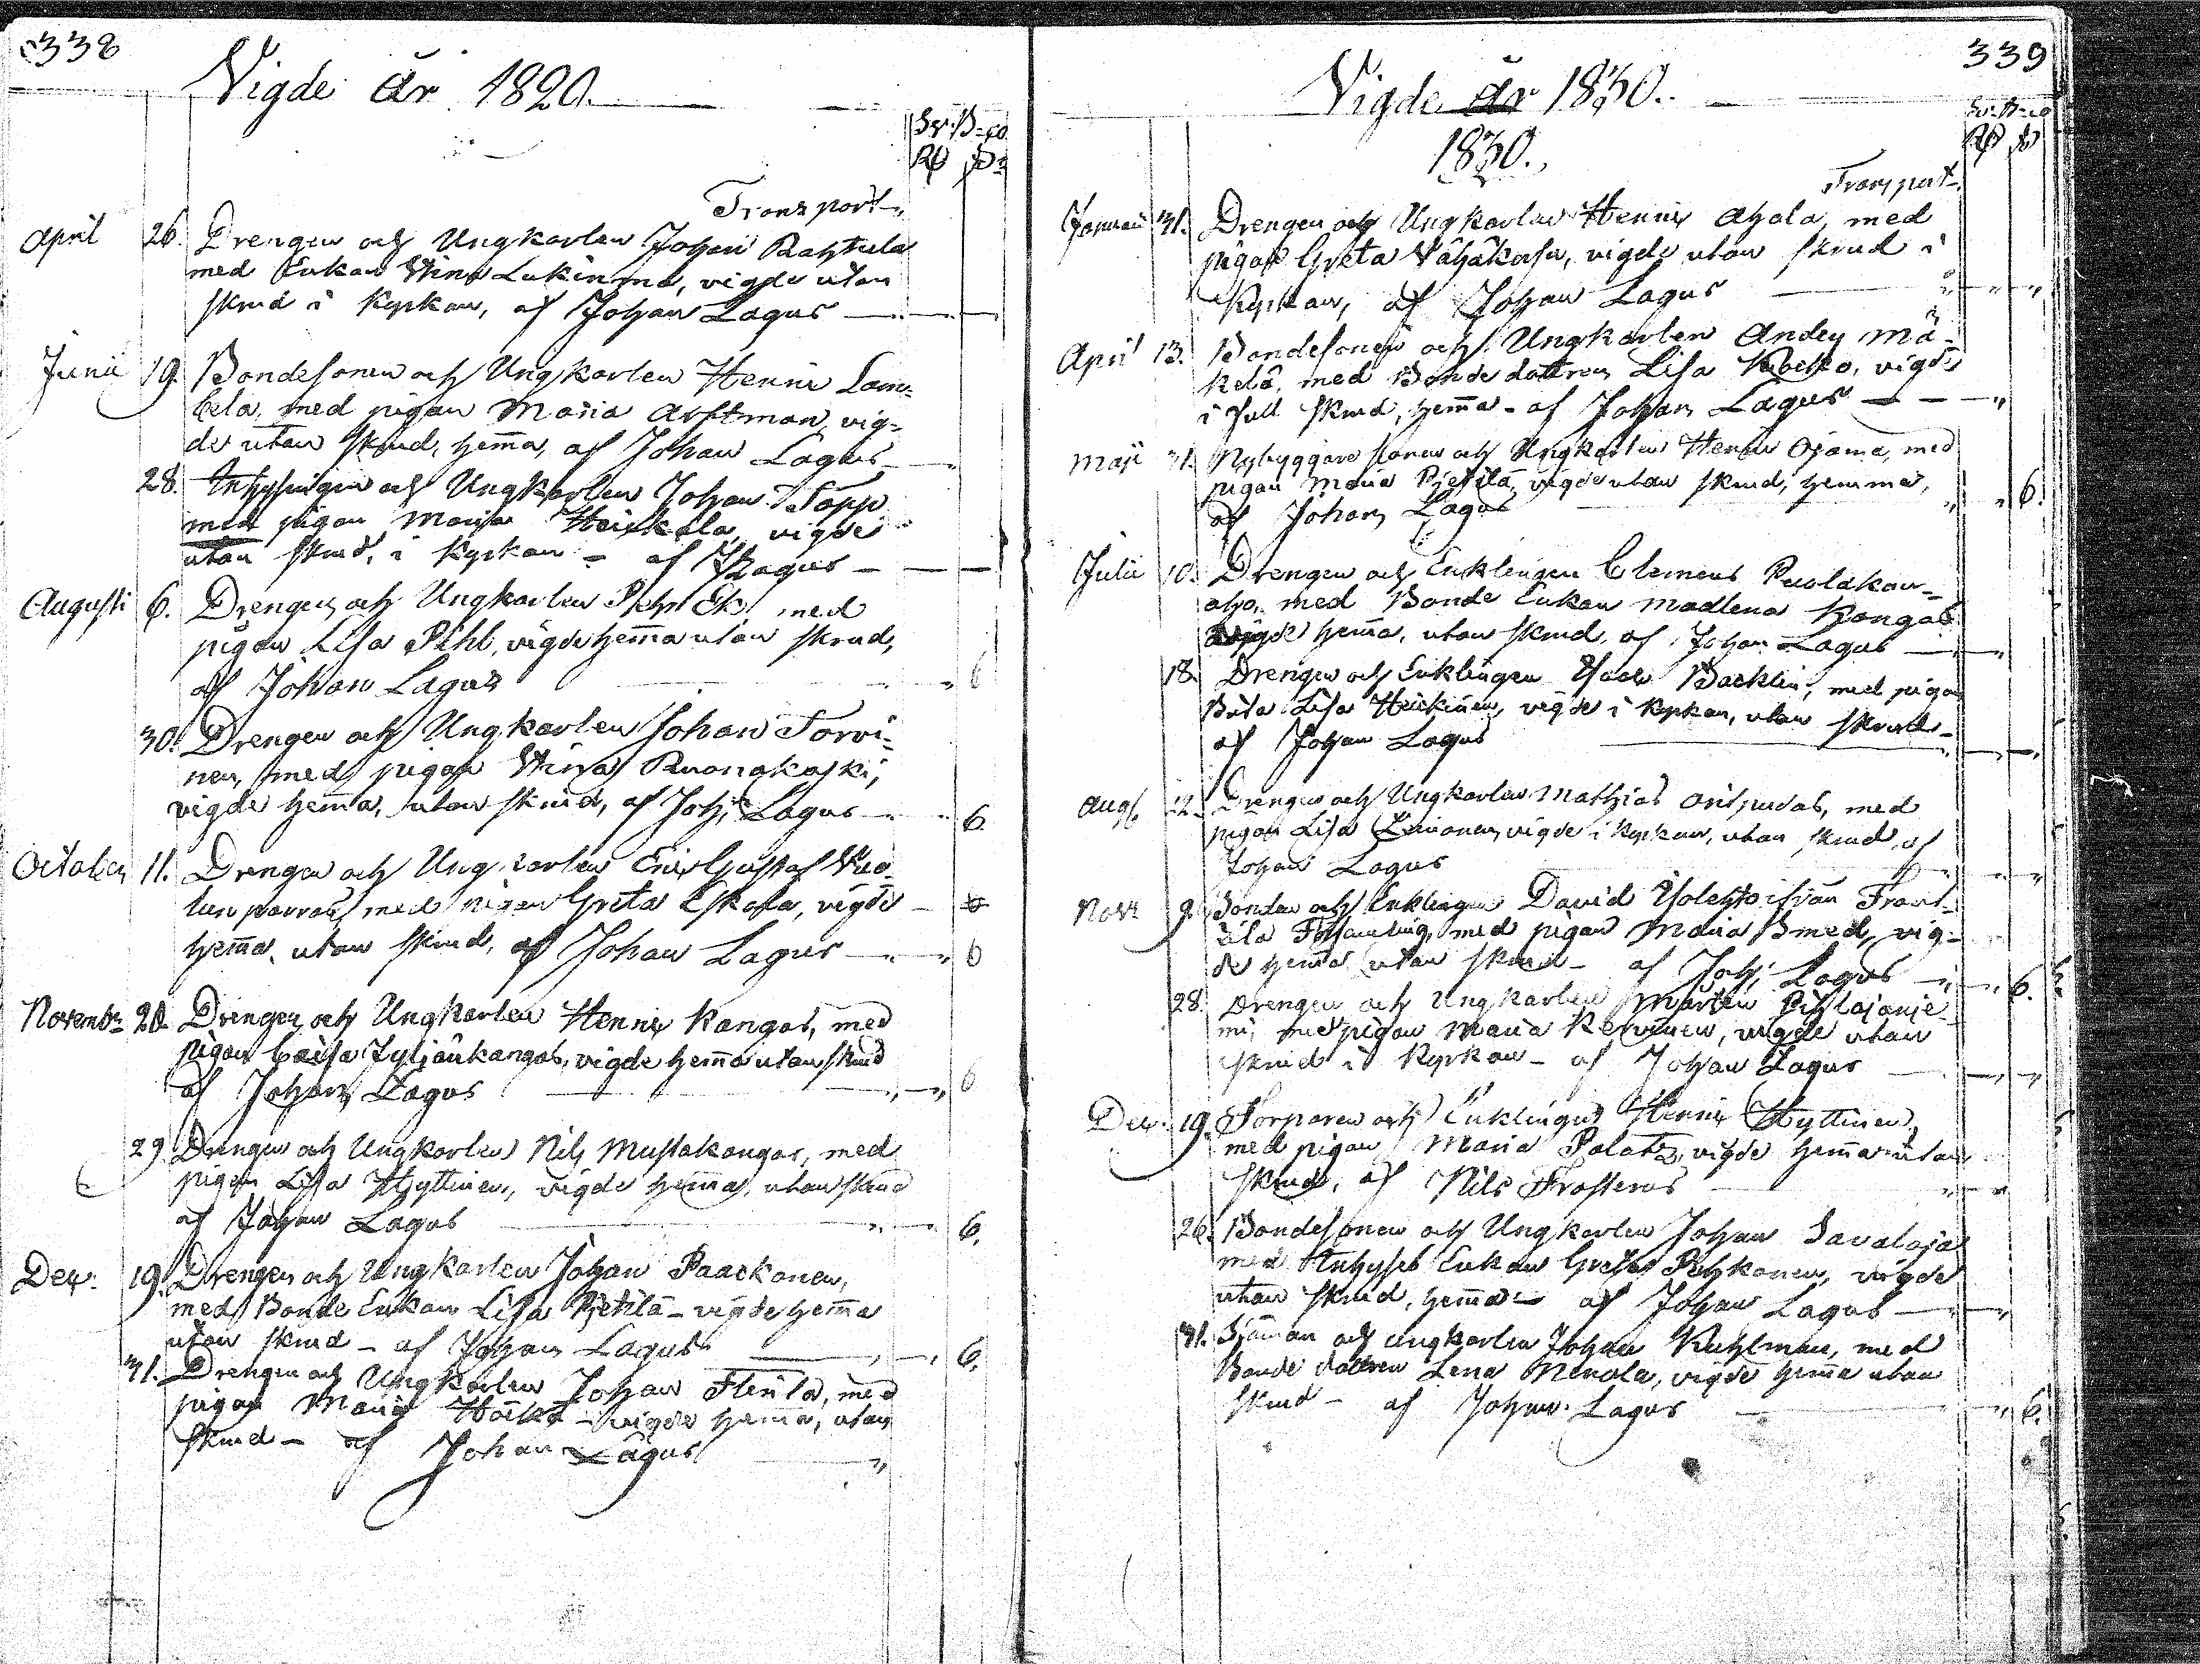 338
Vigde År 1829.
Sv. B=co.
Rd
Transport
April 26. Drengen och Ungkarlen Johan Rahtula
med Enkan Stina Lukinma, vigde utan
skrud i Kyrkan, af Johan Lagus
Junii 19. Bondesonen och Ungkarlen Henric Lam=
bela, med pigan Maria Arftman, vig=
de utan skrud, hem̄a, af Johan Lagus
28. Inhysingen och Ungkarlen Johan Topp
med pigan Maria Heickala, vigde
utan skrud, i Kyrkan - af J Lagus
Augusti 6. Drengen och Ungkarlen Pehr Ek, med
pigan Lisa Pihl, vigde hem̄a utan skrud,
af Johan Lagus 6
30. Drengen och Ungkarlen Johan Torvi=
nen, med pigan Stina Ruongkaski,
vigde hem̄a, utan skrud, af Joh: Lagus 6.
October 11. Drengen och Ungkarlen Eric Gustaf
med pigan Greta Eskola, vigde
hem̄a, utan skrud, af Johan Lagus 6
Novembr 20. Drengen och Ungkarlen Henric Kangas, med
pigan Caisa vigde hem̄a utan skrud
af Johan Lagus 6
29. Drengen och Ungkarlen Nils Mustakangas, med
pigan Lisa Hyttinen, vigde hem̄a, utan skrud
af Johan Lagus 6.
Dec: 19. Drengen och Ungkarlen Johan Paackonen,
med Bonde Enkan Lisa Pietilä - vigde hem̄a
utan skrud - af Johan Lagus 6.
31. Drengen och Ungkarlen Johan Flenila, med
pigan Maria vigde hem̄a, utan
skrud - af Johan Lagus
339
Vigde år 1830.
Sv. B=co
Rd
1830.
Transport
Januari 31. Drengen och Ungkarlen Henric Ahola, med
pigan Greta vigde utan skrud i
Kyrkan, af Johan Lagus
April 13. Bondesonen och Ungkarlen Anders Mä=
kelä, med Bonde dottren Lisa vigde
i full skrud, hem̄a - af Johan Lagus
Maji 31. Nybyggare sonen och Ungkarlen Henric Ojama, med
pigan Maria Pietilä, vigde utan skrud, hemma,
af Johan Lagus 6.
Julii 10. Drengen och Enklingen Clemens Puolakan=
aho, med Bonde Enkan Madlena Kangas
vigde hem̄a, utan skrud, af Johan Lagus
18. Drengen och Enklingen Isaac Backlin, med pigan
Brita Lisa Heickinen, vigde i Kyrkan, utan skrud
af Johan Lagus
Aug 12. Drengen och Ungkarlen Mathias Oripudas, med
pigan Lisa vigde i Kyrkan, utan skrud, af
Johan Lagus
Novr 9. Bonden och Enklingen David från Frant=
sila Församling, med pigan Maria Smed, vig=
de hem̄a utan skrud - af Joh: Lagus 6.
28. Drengen och Ungkarlen Mårten Pihlajanie
mi, med pigan Maria Kervinen, vigde utan
skrud i Kyrkan - af Johan Lagus
Dec. 19. Torparen och Enklingen Henric Hyttinen,
med pigan Maria vigde hem̄a utan
skrud, af Nils Frosterus
26. Bondesonen och Ungkarlen Johan Savaloja
med Inhyses Enkan Greta Pehkonen, vigde
utan skrud, hem̄a - af Johan Lagus
31. Sjöman och Ungkarlen Johan Kuhlman, med
Bonde dottren Lena Merola, vigde hem̄a utan
skrud - af Johan Lagus 6.